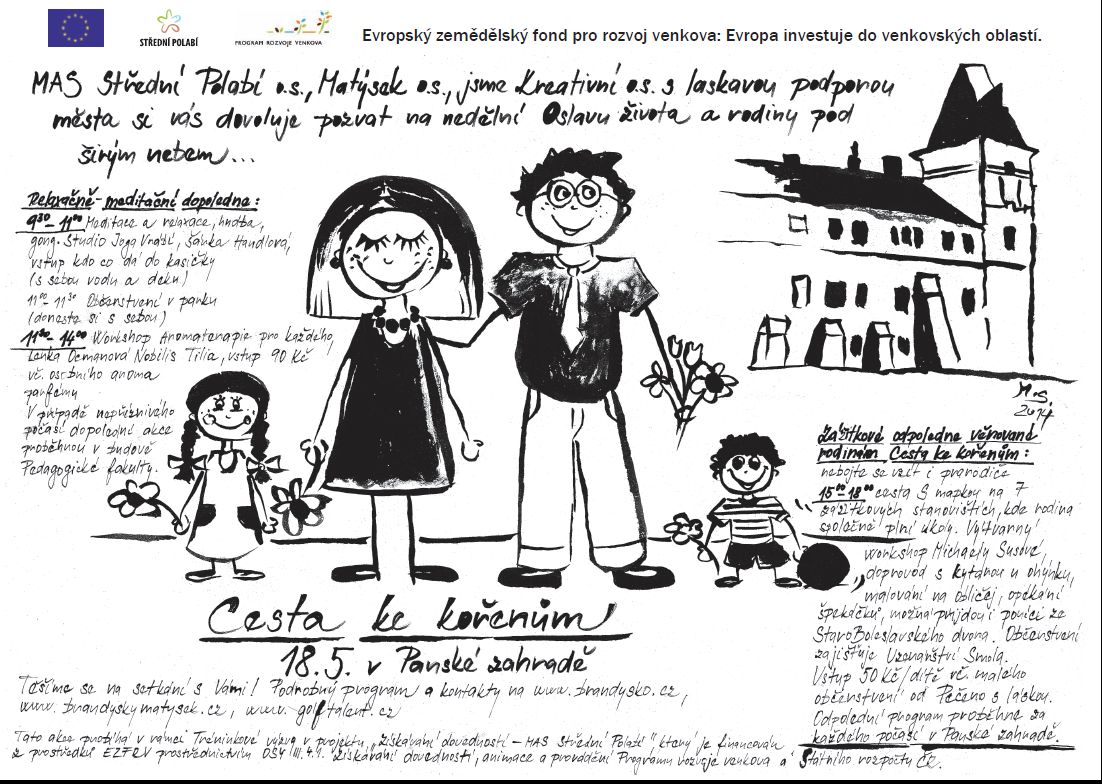 STŘEDNÍ POLABÍ
PROGRAM ROZVOJE VENKOVA
Evropský zemědělský fond pro rozvoj venkova: Evropa investuje do venkovských oblastí.
MAS Střední Polabí o.s., Matýsek o.s., jsme Kreativní o.s. s laskavou podporou
města si vás dovoluje pozvat na nedělní Oslavu života a rodiny pod
širým nebem...
Relaxačně-meditační dopoledne:
9³⁰-11⁰⁰ Meditace a relaxace, hudba,
gong. Studio Joga Vnoží, Šárka Handlová,
vstup kdo co dá do kasičky
(s sebou vodu a deku)
11⁰⁰-11³⁰ Občerstvení v parku
(doneste si s sebou)
11³⁰-14⁰⁰ Workshop Aromaterapie pro každého,
Lenka Ocmanová Nobilis Tilia, vstup 90 Kč
vč. osobního aroma
parfému
V případě nepříznivého
počasí dopolední akce
proběhnou v budově
Pedagogické fakulty.
M.S.
2014
Zážitkové odpoledne věnované
rodinám Cesta ke kořenům:
nebojte se vzít i prarodiče
15⁰⁰-18⁰⁰ cesta s mapkou na 7
zážitkových stanovištích, kde rodina
společně plní úkoly. Výtvarný
workshop Michaely Susové,
doprovod s kytarou u ohýnku,
malování na obličej, opékání
špekáčků, možná přijdou i poníci ze
StaroBoleslavského dvora. Občerstvení
zajišťuje Uzenářství Smola.
Vstup 50 Kč/dítě vč. malého
občerstvení od Pečeno s láskou.
Odpolední program proběhne za
každého počasí v Panské zahradě.
Cesta ke kořenům
18.5. v Panské zahradě
Těšíme se na setkání s Vámi! Podrobný program a kontakty na www.brandysko.cz,
www.brandyskymatysek.cz, www.golftalent.cz
Tato akce probíhá v rámci Tréninkové výzvy v projektu „Získávání dovedností – MAS Střední Polabí" který je financován
z prostředků EZFRV prostřednictvím OSY III.4.1. "Získávání dovedností, animace a provádění Programu rozvoje venkova a Státního rozpočtu ČR.